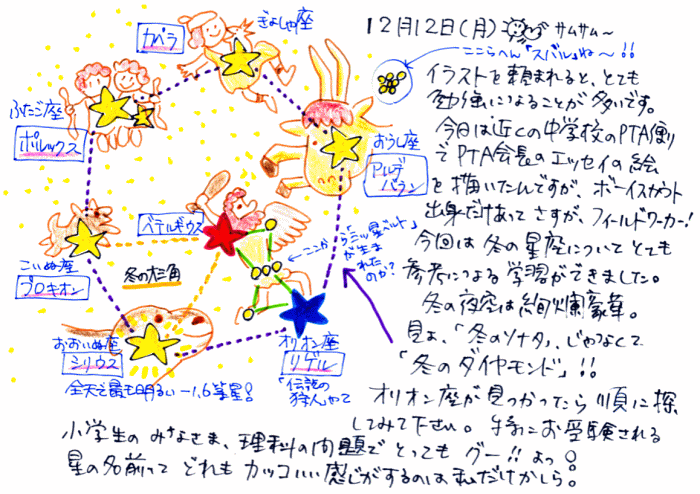 12月12日(月) サムサム〜
ここらへん「スバル」ね〜!!
イラストを頼まれると、とても
勉強になることが多いです。
今日は近くの中学校のPTA便り
でPTA会長のエッセイの絵
を描いたんですが、ボーイスカウト
出身だけあってさすが、フィールドワーカー!
今回は冬の星座についてとても
参考になる学習ができました。
冬の夜空は絢爛豪華。
見よ、「冬のソナタ」、じゃなくて
「冬のダイヤモンド」!!
オリオン座が見つかったら順に探
してみて下さい。特にお受験される
小学生のみなさま、理科の問題でとってもグー!!よっ!
星の名前ってどれもカッコいい感じがするのは私だけかしら。
ぎょしゃ座
カペラ
ふたご座
ポルックス
おうし座
アルデ
バラン
ベテルギウス
ここから「三ツ星ベルト」
が生ま
れた
のか?
こいぬ座
プロキオン
冬の大三角
おおいぬ座
シリウス
全天で最も明るい-1.6等星!
オリオン座
リゲル
「伝説の
狩人やて